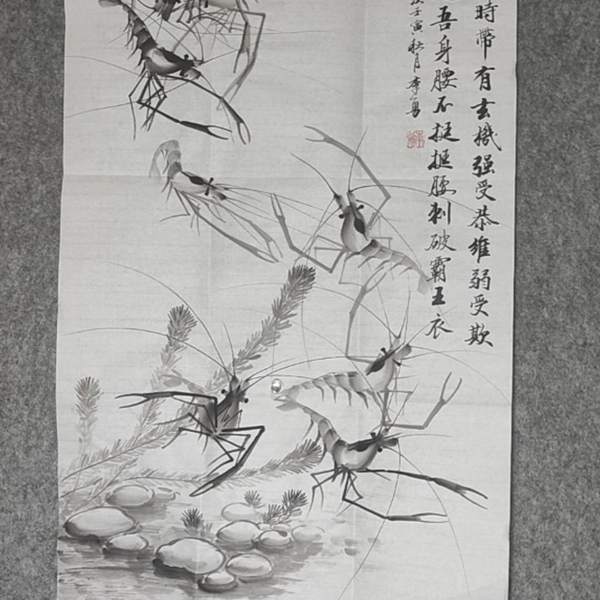 時帶有玄機强受恭維弱受欺
吾身腰不挺挺腰刺破霸王衣
壬寅秋月李勇